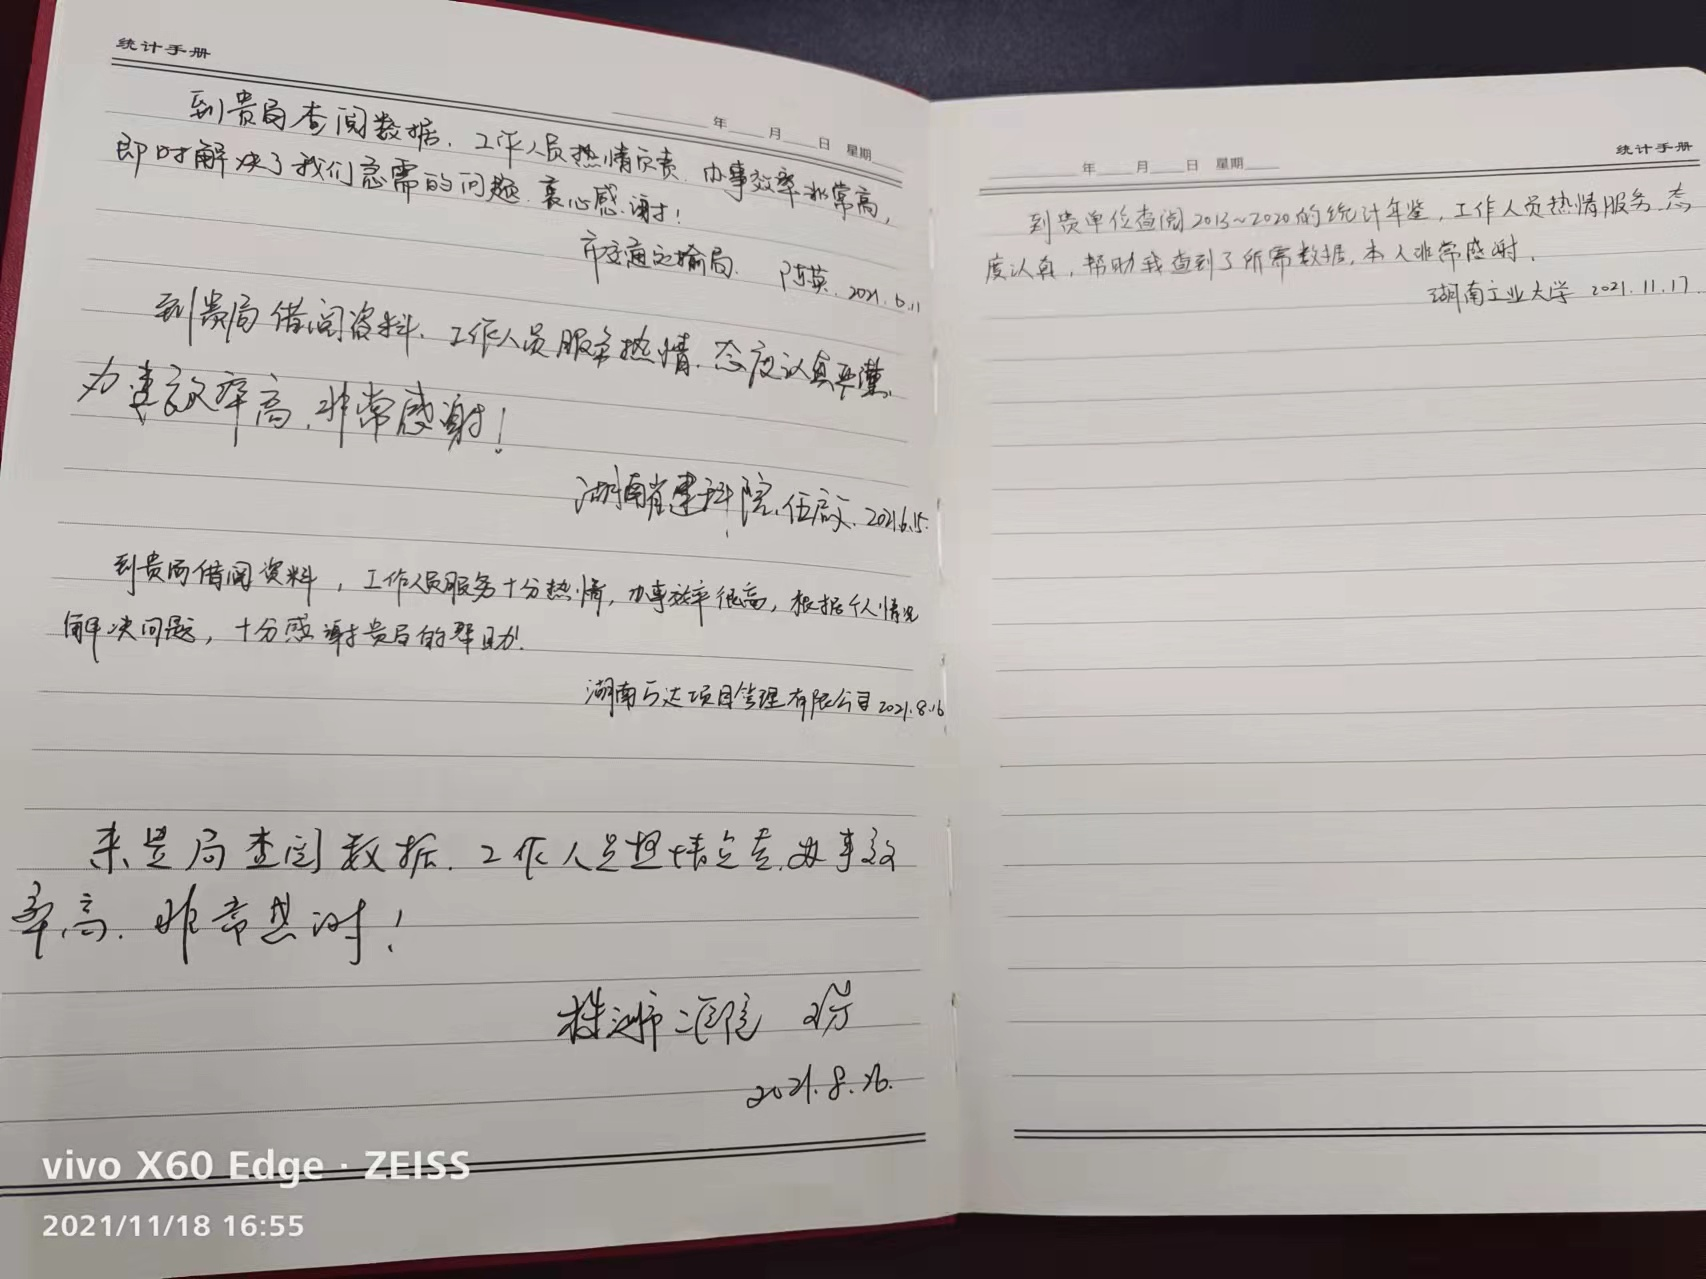 统计手册
年 月 日 星期
到贵局查阅数据，工作人员热情负责，办事效率非常高，
即时解决了我们急需的问题，衷心感谢！
市交通运输局 陈英 2021.6.11
到贵局借阅资料，工作人员服务热情，态度认真严谨，
办事效率高，非常感谢！
湖南省建科院 2021.6.15
到贵局借阅资料，工作人员服务十分热情，办事效率很高，根据个人情况
解决问题，十分感谢贵局的帮助！
湖南 达项目管理有限公司 2021.8.16
来贵局查阅数据，工作人员热情负责，办事效
率高，非常感谢！
株洲市 院
2021.8.26.
vivo X60 Edge · ZEISS
2021/11/18 16:55
统计手册
年 月 日 星期
到贵单位查阅2013~2020的统计年鉴，工作人员热情服务，态
度认真，帮助我查到了所需数据，本人非常感谢。
湖南工业大学 2021.11.17